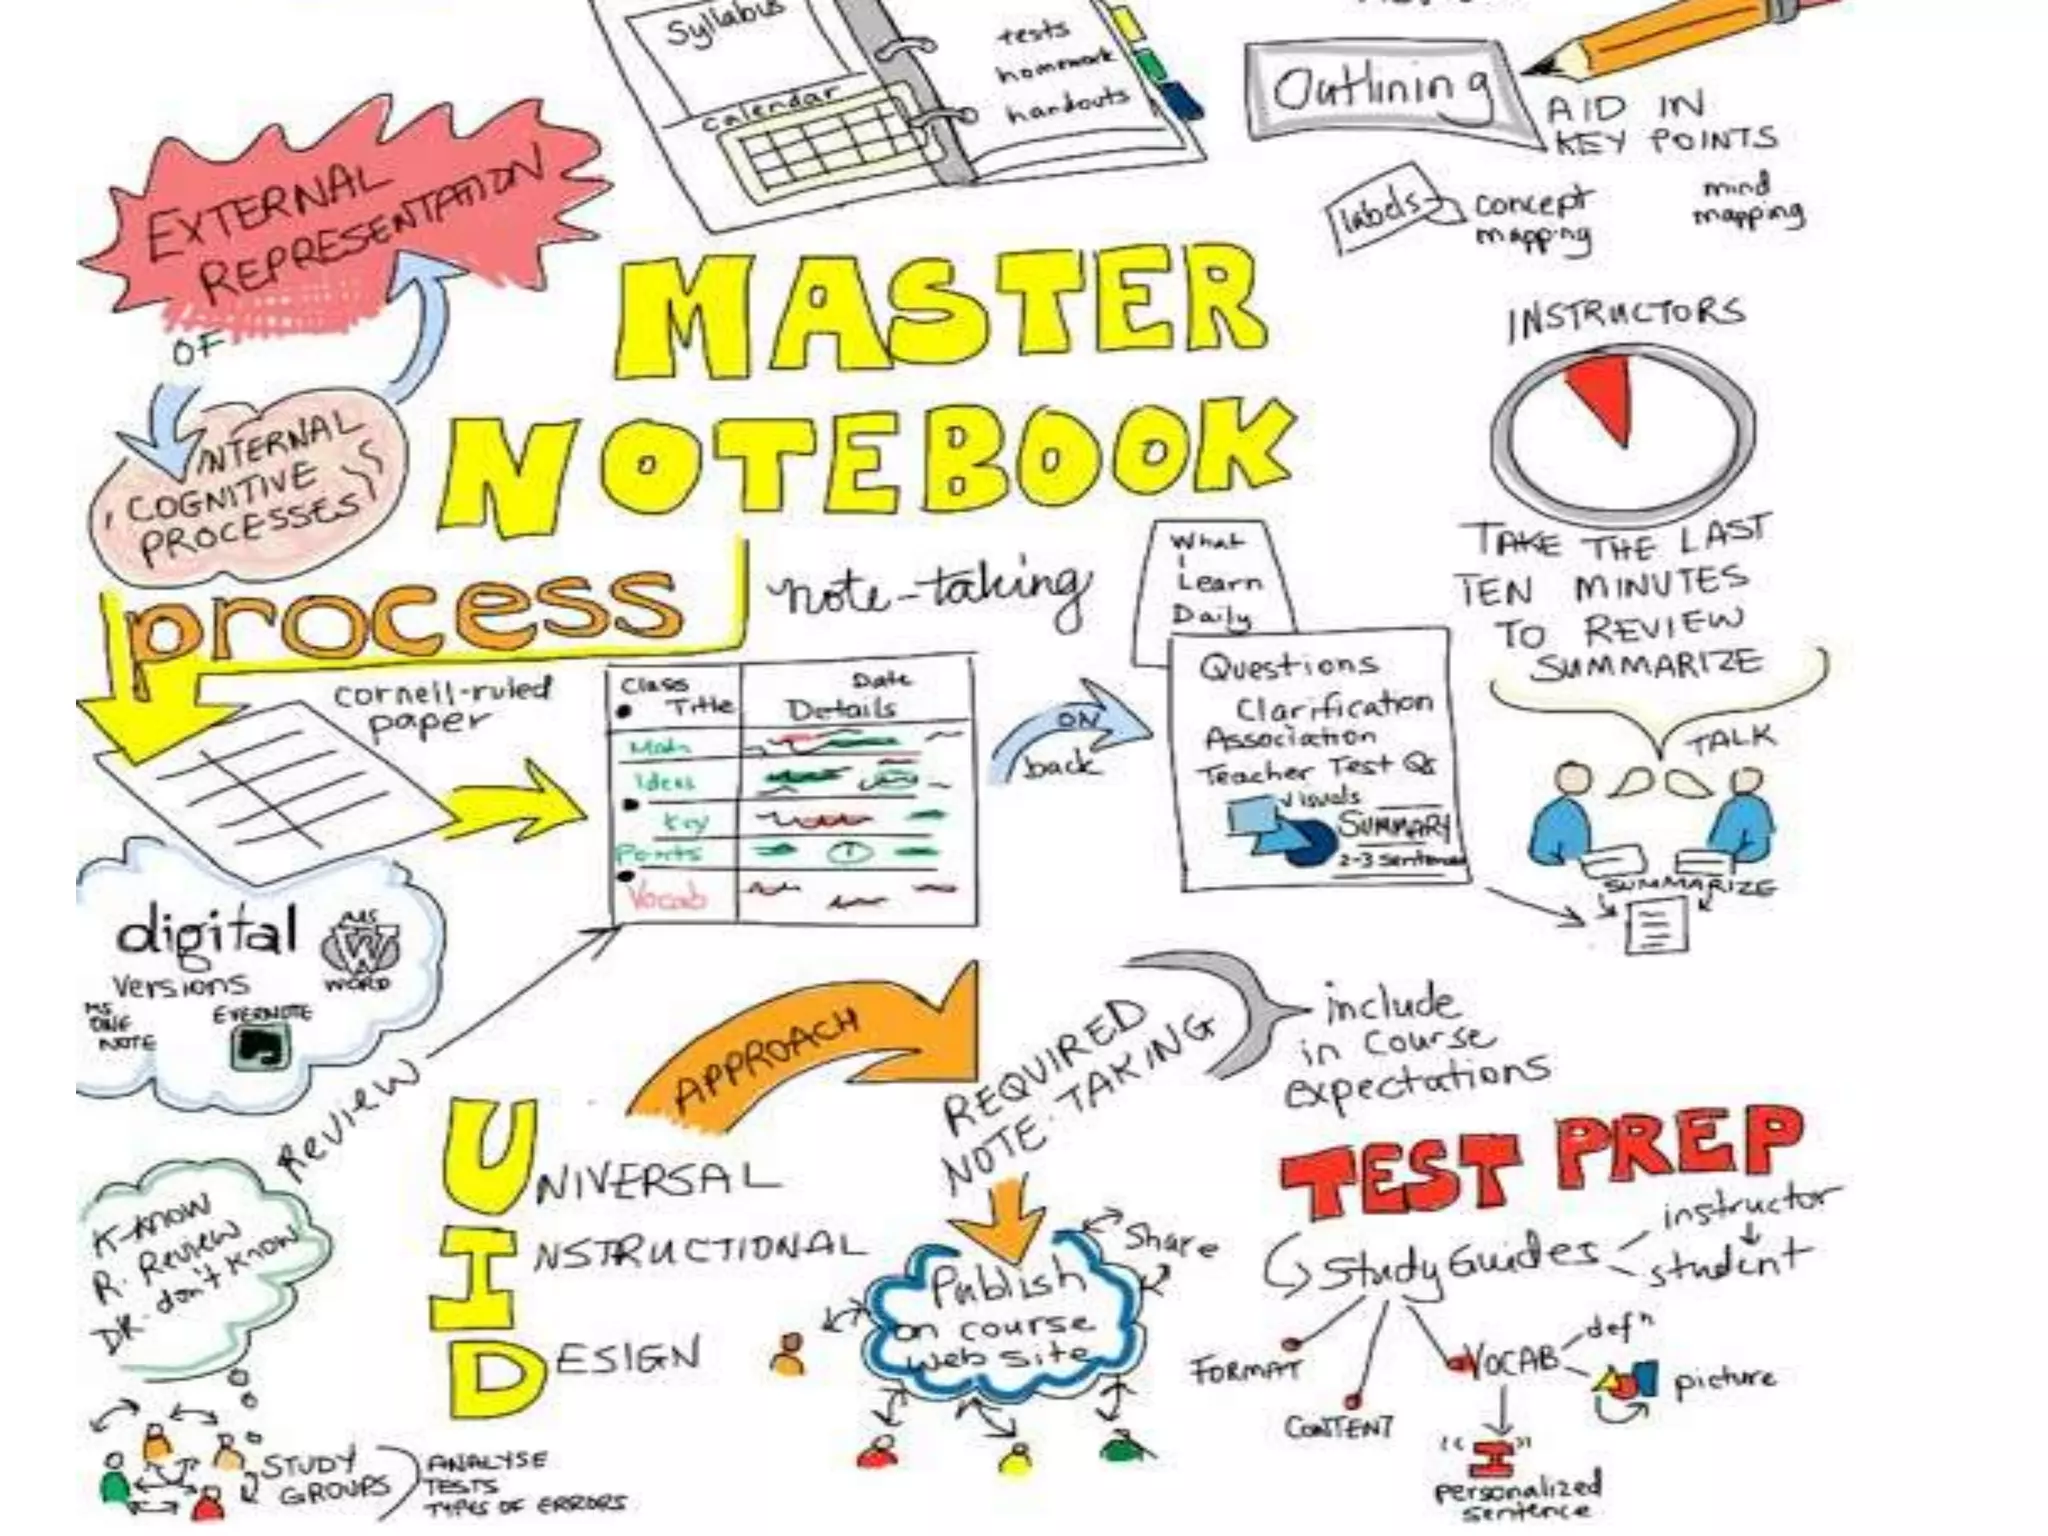 Syllabus
calendar
tests
homework
handouts
Outlining
AID IN
KEY POINTS
labels
concept
mapping
mind
mapping
EXTERNAL
REPRESENTATION
OF
INTERNAL
COGNITIVE
PROCESSES
MASTER
NOTEBOOK
INSTRUCTORS
TAKE THE LAST
TEN MINUTES
TO REVIEW
SUMMARIZE
TALK
SUMMARIZE
process
note-taking
cornell-ruled
paper
Class
Title
Date
Details
Main
Ideas
Key
Points
Vocab
ON
back
What
I
Learn
Daily
Questions
Clarification
Association
Teacher Test Qs
visuals
SUMMARY
2-3 sentences
digital
versions
MS
WORD
MS
ONE
NOTE
EVERNOTE
Review
APPROACH
REQUIRED
NOTE-TAKING
include
in course
expectations
UNIVERSAL
INSTRUCTIONAL
DESIGN
K-KNOW
R-Review
DK-don't know
STUDY
GROUPS
ANALYSE
TESTS
TYPES OF ERRORS
Publish
on course
web site
Share
TEST PREP
Study Guides
instructor
student
FORMAT
CONTENT
VOCAB
def'n
picture
"I"
personalized
sentence